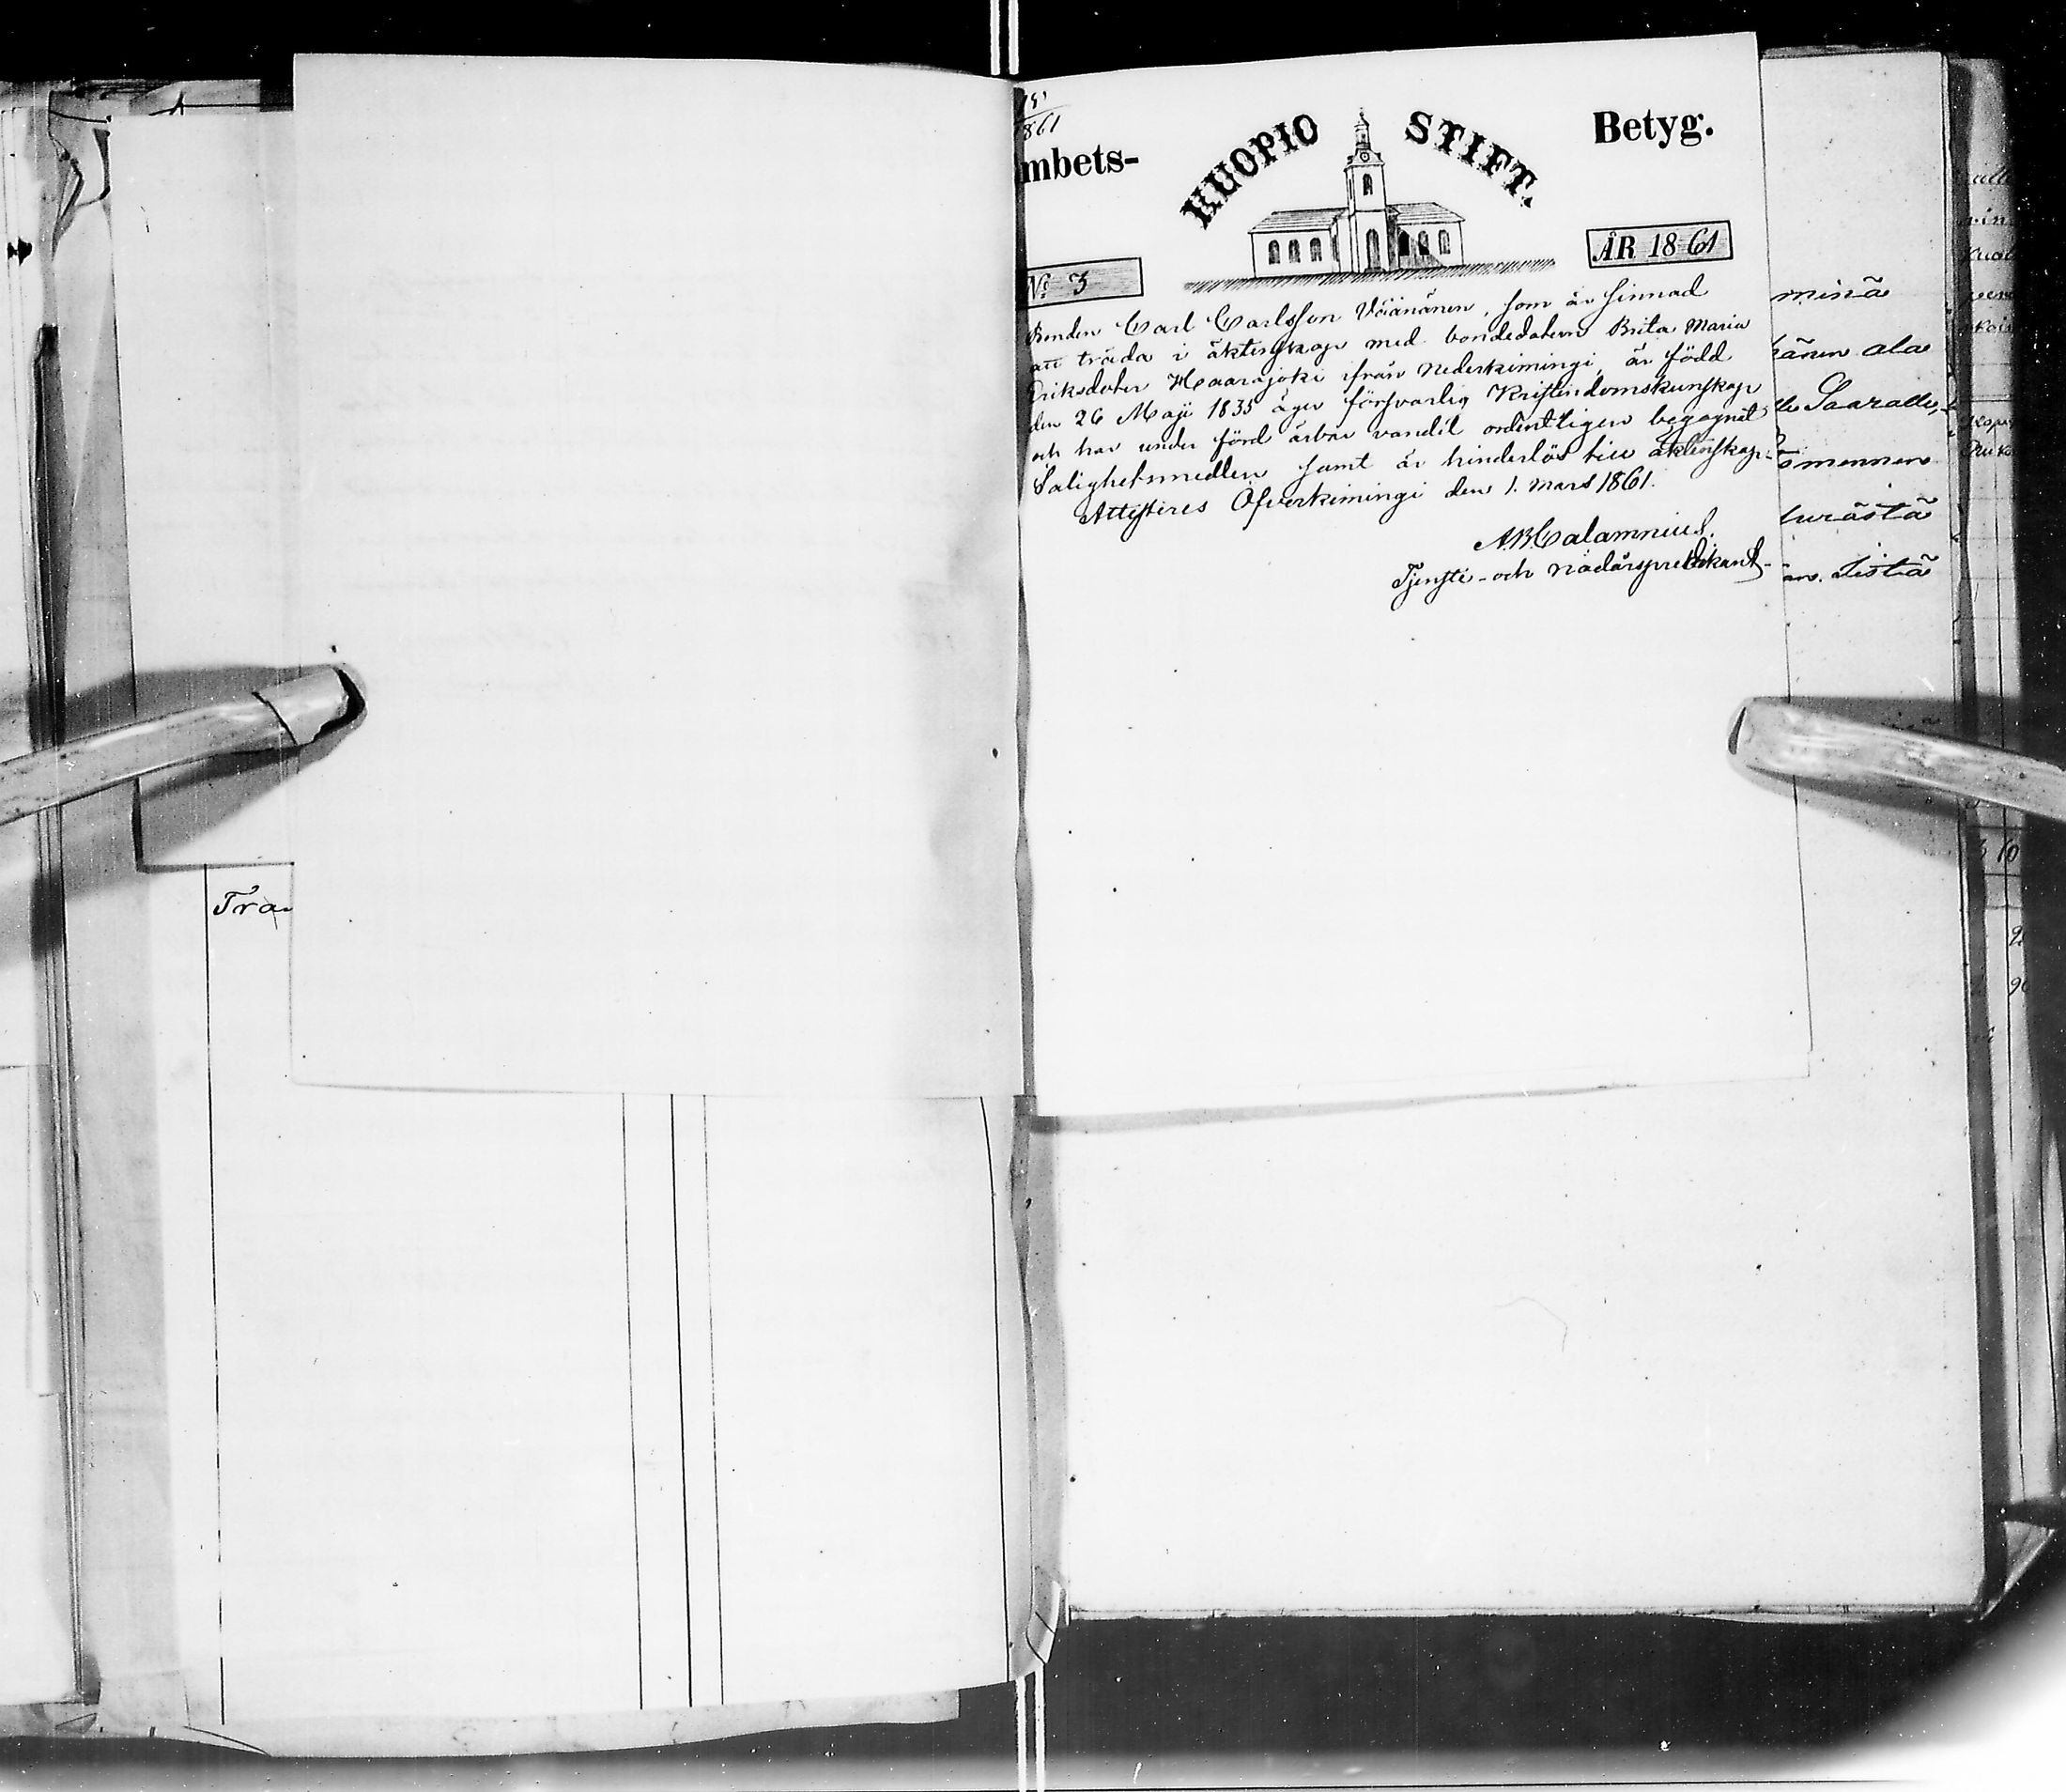 Tra
1861
mbets-
KUOPIO STIFT.
Betyg.
No 3
ÅR 1861
Bonden Carl Carlsson Väänänen, som är sinnad
att träda i äktenskap med bondedotern Brita Maria
Eriksdoter Haarajoki ifrån Nederkimingi, är född
den 26 Maji 1835 äger försvarlig Kristendomskunskap
och har under förd ärbar vandel ordentligen begagnat
Salighetsmedlen samt är hinderlös till äktenskap.
Attesteres Öfverkimingi den 1. Mars 1861.
A.B. Calamnius.
Tjenste- och nådårspredikant.
minä
hänen ala
Saaralle,
mennen
turästä
Sistä